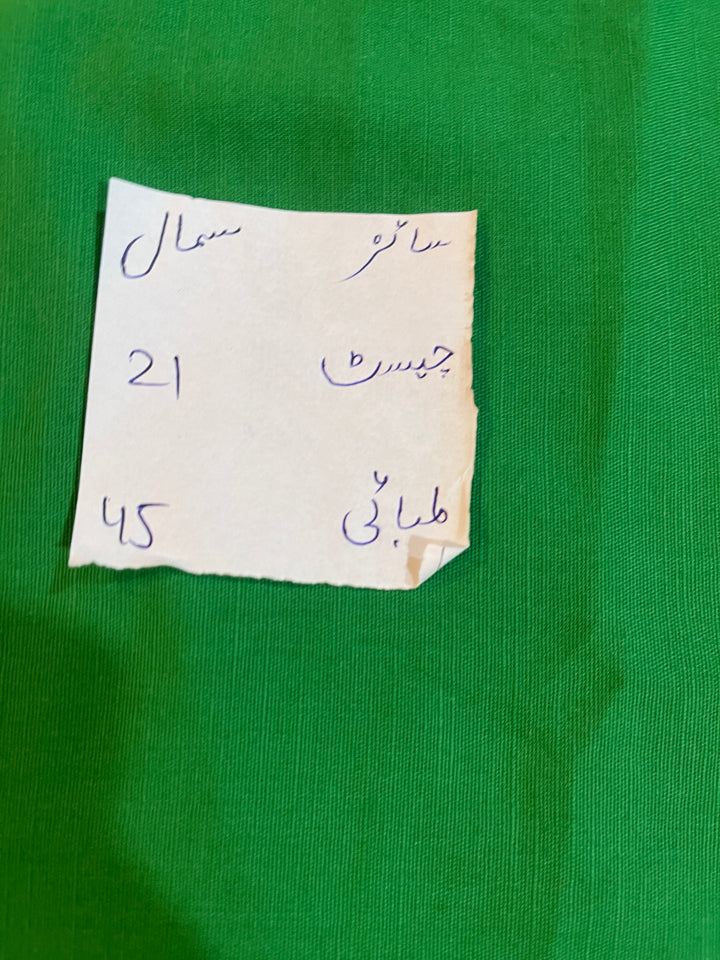 سائز سمال
چیسٹ 21
لمبائی 45